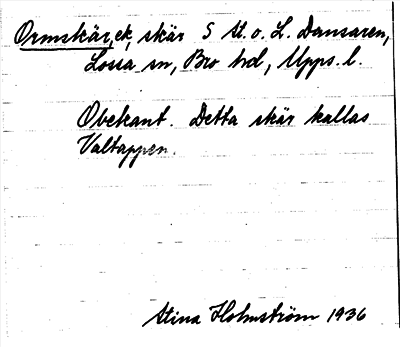 Ormskär, ek, skär S St. o. L. Dansaren,
Lossa sn, Bro hd, Upps. l.
Obekant. Detta skär kallas
Valtappen.
Stina Holmström 1936